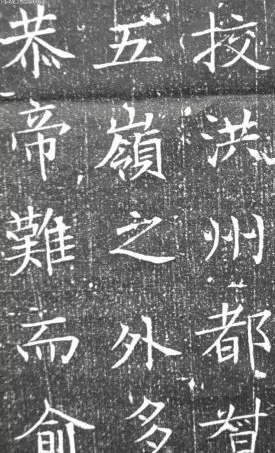 挍洪州都督
五嶺之外多
恭帝難而俞